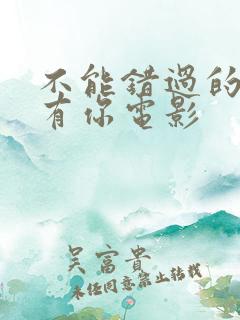 不能错过的
有你电影
吴富贵
未经同意禁止转载